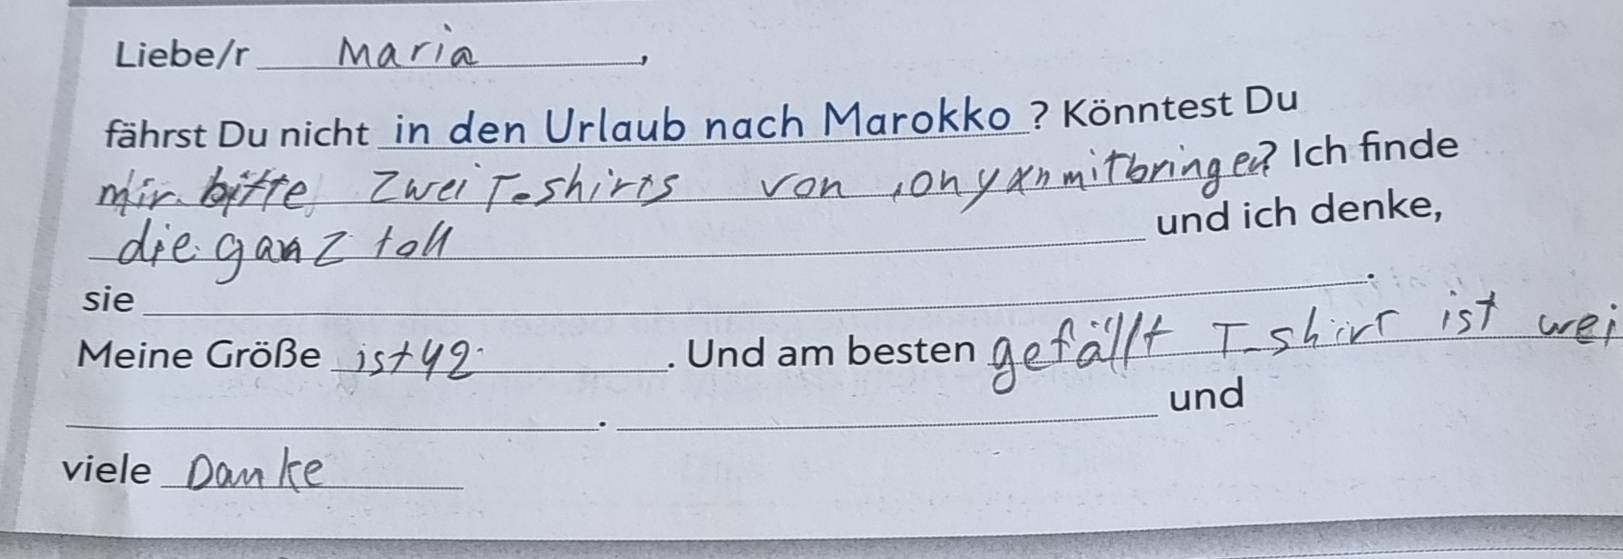 Liebe/r Maria,
fährst Du nicht in den Urlaub nach Marokko? Könntest Du
mir bitte zwei T-shirts von mitbringen? Ich finde
die ganz toll und ich denke,
sie .
Meine Größe ist 42. Und am besten gefällt T-shirt ist wei
. und
viele Danke